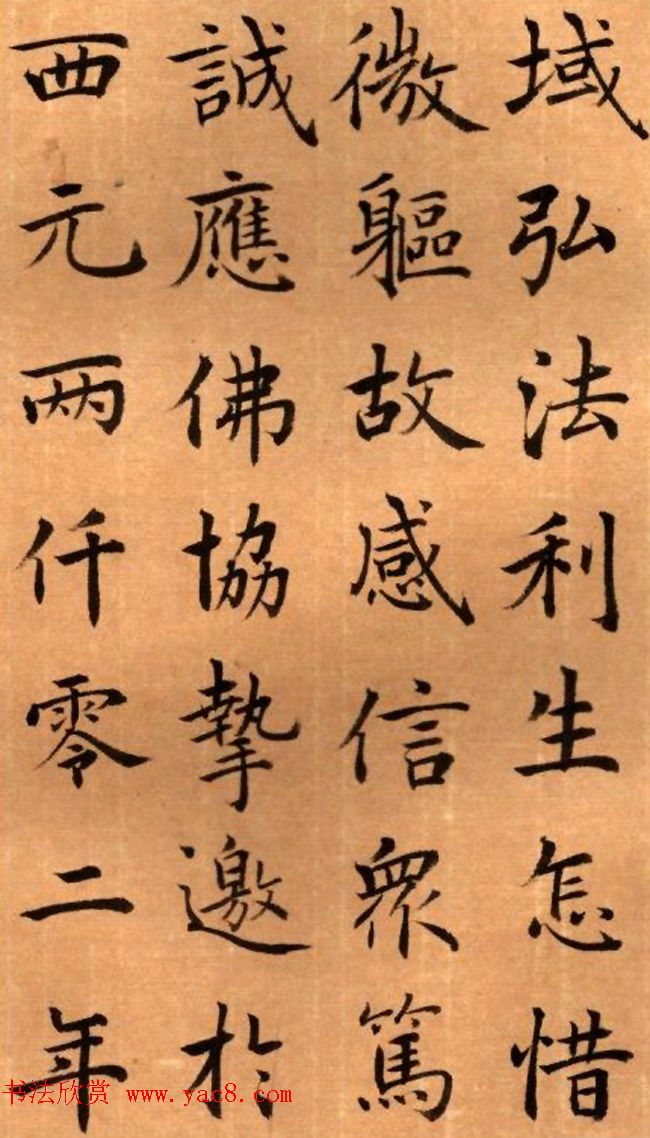 域弘法利生怎惜
微軀故感信眾篤
誠應佛協摯邀於
西元两仟零二年
书法欣赏 www.yac8.com